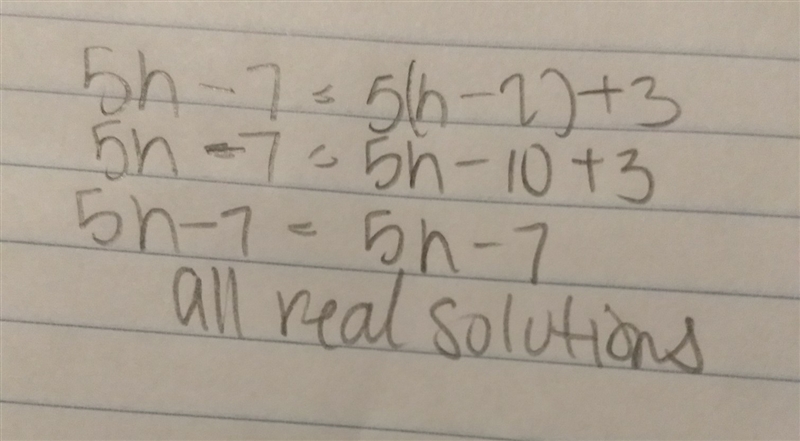 5n - 7 = 5(n - 2) + 3
5n - 7 = 5n - 10 + 3
5n - 7 = 5n - 7
all real solutions